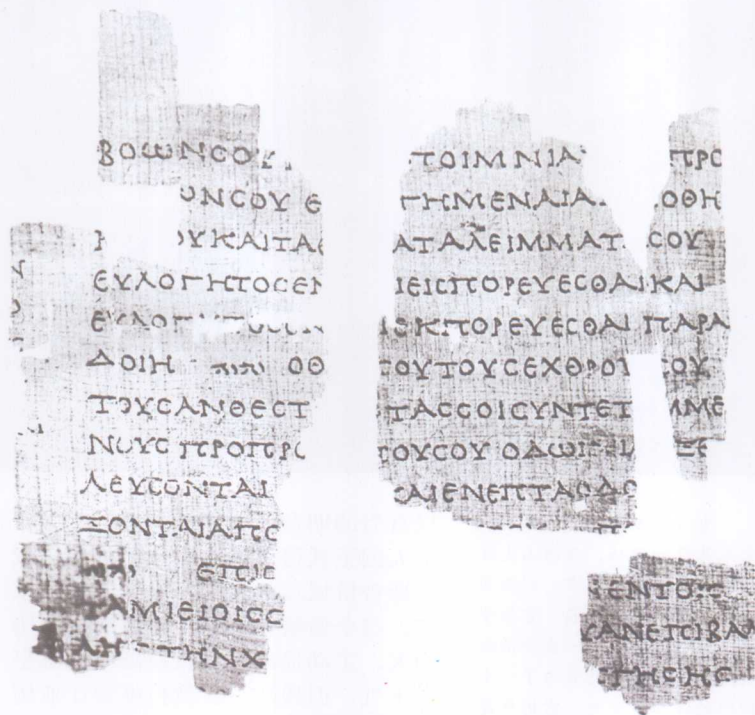 ΒΟΩΝϹΟ ΠΟΙΜΝΙΑ ΠΡΟ
ΩΝϹΟΥ Ε ΓΗΜΕΝΑΙΑ ΟΘΗ
ΟΥΚΑΙΤΑΕ ΑΤΑΛΕΙΜΜΑΤ ϹΟΥ
ΕΥΛΟΓΗΤΟϹΕΝ ΙΕΙϹΠΟΡΕΥΕϹΘΑΙΚΑΙ
ΕΥΛΟΓ ΕΚΠΟΡΕΥΕϹΘΑΙ ΠΑΡΑ
ΔΟΙΗ יהוה ΟΘ ϹΟΥΤΟΥϹΕΧΘΡΟΥ ϹΟΥ
ΤΟΥϹΑΝΘΕϹΤ ΤΑϹϹΟΙϹΥΝΤΕΤ ΜΜΕ
ΝΟΥϹ ΠΡΟΠΡΟ ΠΟΥϹΟΥ ΟΔΩΙ ΞΕ
ΛΕΥϹΟΝΤΑΙ ΚΑΙΕΝΕΠΤΑΟΔΟ
ΞΟΝΤΑΙΑΠΟ
יהוה ΕΠΙϹ ΕΝΤΟΙϹ
ΤΑΜΙΕΙΟΙϹϹ ΑΝΕΠΙΒΑΛ
ΛΗϹ ΤΗΝΧ ΤΗϹΓΗϹ